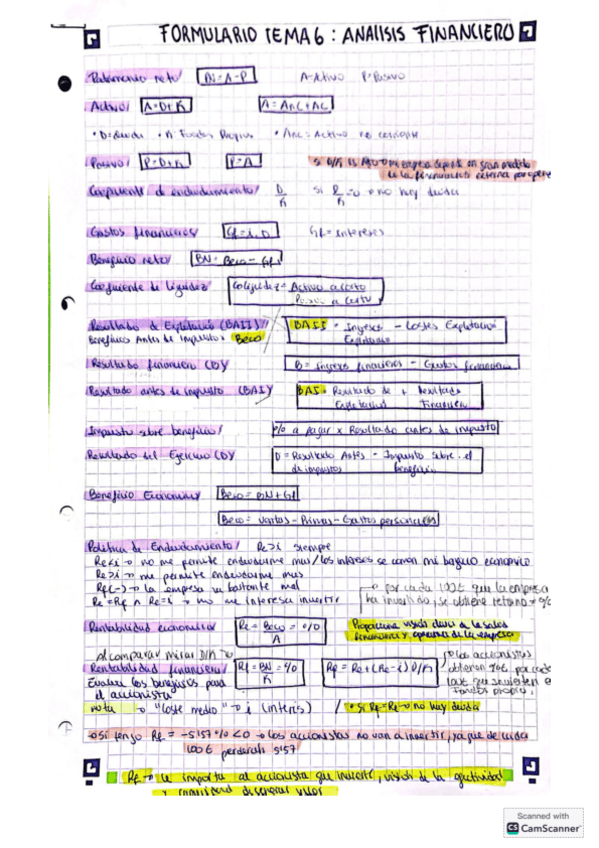 FORMULARIO TEMA 6 : ANALISIS FINANCIERO
Patrimonio neto PN = A-P A-Activo P-Pasivo
Activo/ A=D+K A = AnC+AC
• D=deuda • K: Fondos Propios • AnC = Activo no corriente
Pasivo/ P=D+K P=A si D/K es
de la financiación externa para
Coeficiente de endeudamiento/ D/K si D/K=0 → no hay deuda
Gastos financieros/ Gf = i.D Gf = intereses
Beneficio neto/ BN = Beco - Gf
Coeficiente de liquidez/ Coliquidez = Activo a corto
Pasivo a corto
Resultado de Explotación (BAII)/ BAII = Ingresos - Costes Explotación
Beneficios Antes de Impuestos Beco Explotación
Resultado financiero (B)/ B = ingresos financieros - Gastos financieros
Resultado antes de impuesto (BAI)/ BAI = Resultado de + Resultado
Explotación Financiero
Impuesto sobre beneficio/ % a pagar x Resultado antes de impuesto
Resultado del Ejercicio (D)/ D = Resultado Antes - Impuesto sobre el
de impuestos beneficio
Beneficio Economico/ Beco = BN + Gf
Beco = Ventas - Primas - Gastos personal
Politica de Endeudamiento/ Re>i siempre
Re<i → no me permite endeudarme mas/los intereses se comen mi beneficio economico
Re>i → me permite endeudarme mas
Rf(-) → la empresa va bastante mal → por cada 100€ que la empresa
Re=Rf ∧ Re=i → no me interesa invertir ha invertido, se obtiene retorno = %
Rentabilidad economica/ Re = Beco/A = % Proporciona visión clara de la salud
financiera y operativa de la empresa
Al comparar mirar D/K →
Rentabilidad financiera/ Rf = BN/K = % Rf = Re + (Re-i) D/K → los accionistas
Evaluar los beneficios para obtienen por cada
el accionista 100€ que invierten en
Fondos propios
nota → "Coste medio" → i (interés) / • si Rf=Re → no hay deuda
→ si tengo Rf = -5'157% <0 → los accionistas no van a invertir, ya que de cada
100€ perderán 5'157
Rf → le importa al accionista que invierte, visión de la efectividad
y capacidad de generar valor
Scanned with
CS CamScanner